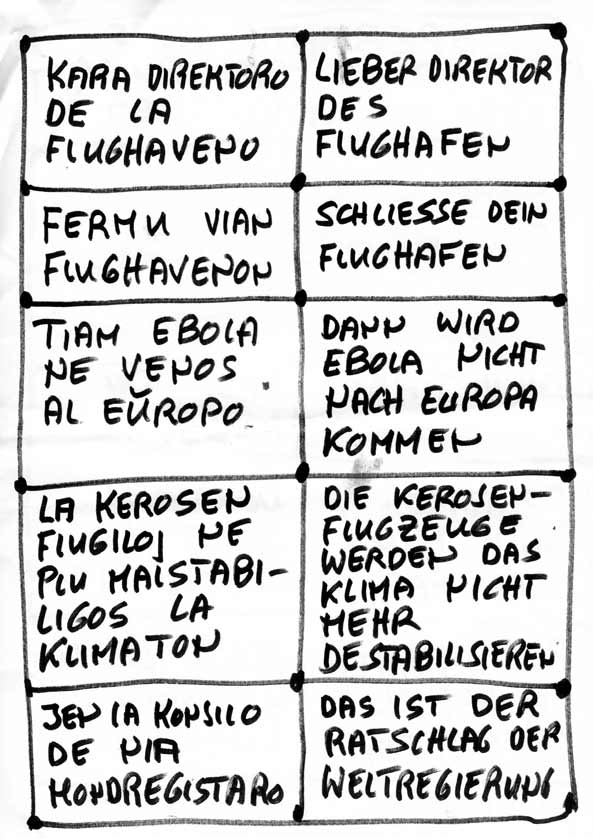 KARA DIREKTORO
DE LA
FLUGHAVENO
LIEBER DIREKTOR
DES
FLUGHAFEN
FERMU VIAN
FLUGHAVENON
SCHLIESSE DEIN
FLUGHAFEN
TIAM EBOLA
NE VENOS
AL EŬROPO
DANN WIRD
EBOLA NICHT
NACH EUROPA
KOMMEN
LA KEROSEN
FLUGILOJ NE
PLU MALSTABI-
LIGOS LA
KLIMATON
DIE KEROSEN-
FLUGZEUGE
WERDEN DAS
KLIMA NICHT
MEHR
DESTABILISIEREN
JEN LA KONSILO
DE NIA
MONDREGISTARO
DAS IST DER
RATSCHLAG DER
WELTREGIERUNG